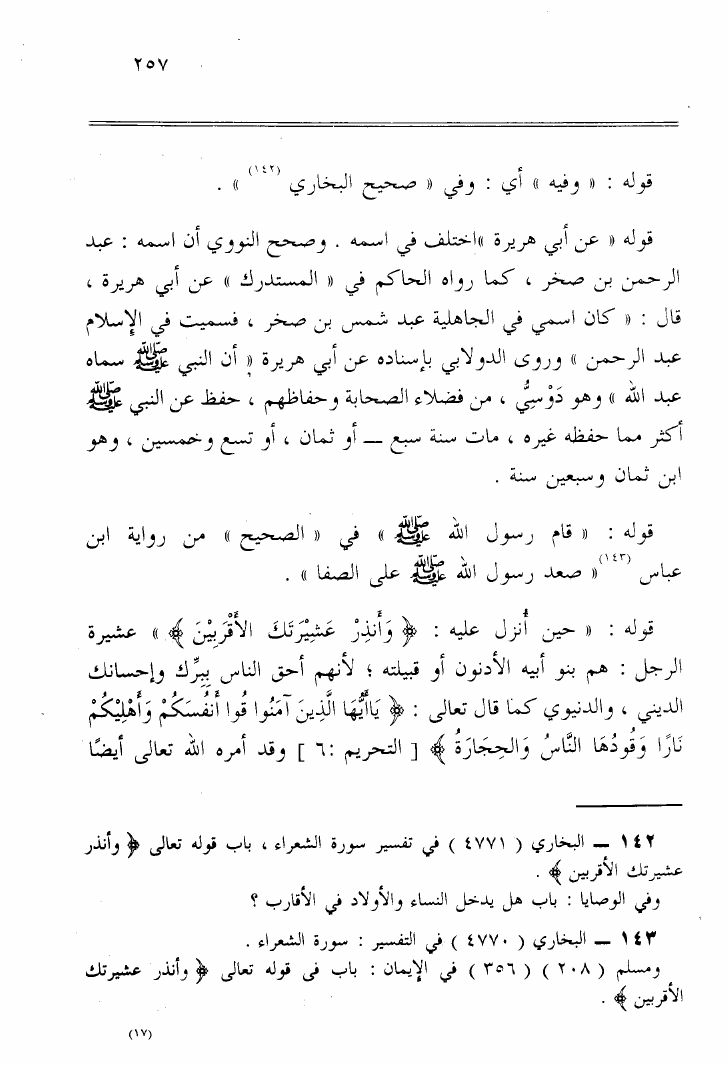 ٢٥٧
قوله : « وفيه » أي : وفي « صحيح البخاري (١٤٢) » .
قوله « عن أبي هريرة »اختلف في اسمه . وصحح النووي أن اسمه : عبد
الرحمن بن صخر ، كما رواه الحاكم في « المستدرك » عن أبي هريرة ،
قال : « كان اسمي في الجاهلية عبد شمس بن صخر ، فسميت في الإسلام
عبد الرحمن » وروى الدولابي بإسناده عن أبي هريرة « أن النبي ﷺ سماه
عبد الله » وهو دَوْسِيٌّ ، من فضلاء الصحابة وحفاظهم ، حفظ عن النبي ﷺ
أكثر مما حفظه غيره ، مات سنة سبع ــ أو ثمان ، أو تسع وخمسين ، وهو
ابن ثمان وسبعين سنة .
قوله : « قام رسول الله ﷺ » في « الصحيح » من رواية ابن
عباس (١٤٣)« صعد رسول الله ﷺ على الصفا » .
قوله : « حين أُنزل عليه : ﴿ وَأَنذِرْ عَشِيْرَتَكَ الأَقْرَبِيْنَ ﴾ » عشيرة
الرجل : هم بنو أبيه الأدنون أو قبيلته ؛ لأنهم أحق الناس بِبِرِّك وإحسانك
الديني ، والدنيوي كما قال تعالى : ﴿ يَاأَيُّهَا الَّذِينَ آمَنُوا قُوا أَنْفُسَكُمْ وَأَهْلِيْكُمْ
نَارًا وَقُودُهَا النَّاسُ وَالحِجَارَةُ ﴾ [ التحريم :٦ ] وقد أمره الله تعالى أيضًا
١٤٢ ــ البخاري ( ٤٧٧١ ) في تفسير سورة الشعراء ، باب قوله تعالى ﴿ وأنذر
عشيرتك الأقربين ﴾ .
وفي الوصايا : باب هل يدخل النساء والأولاد في الأقارب ؟
١٤٣ ــ البخاري ( ٤٧٧٠ ) في التفسير : سورة الشعراء .
ومسلم ( ٢٠٨ ) ( ٣٥٦ ) في الإيمان : باب فى قوله تعالى ﴿ وأنذر عشيرتك
الأقربين ﴾ .
(١٧)